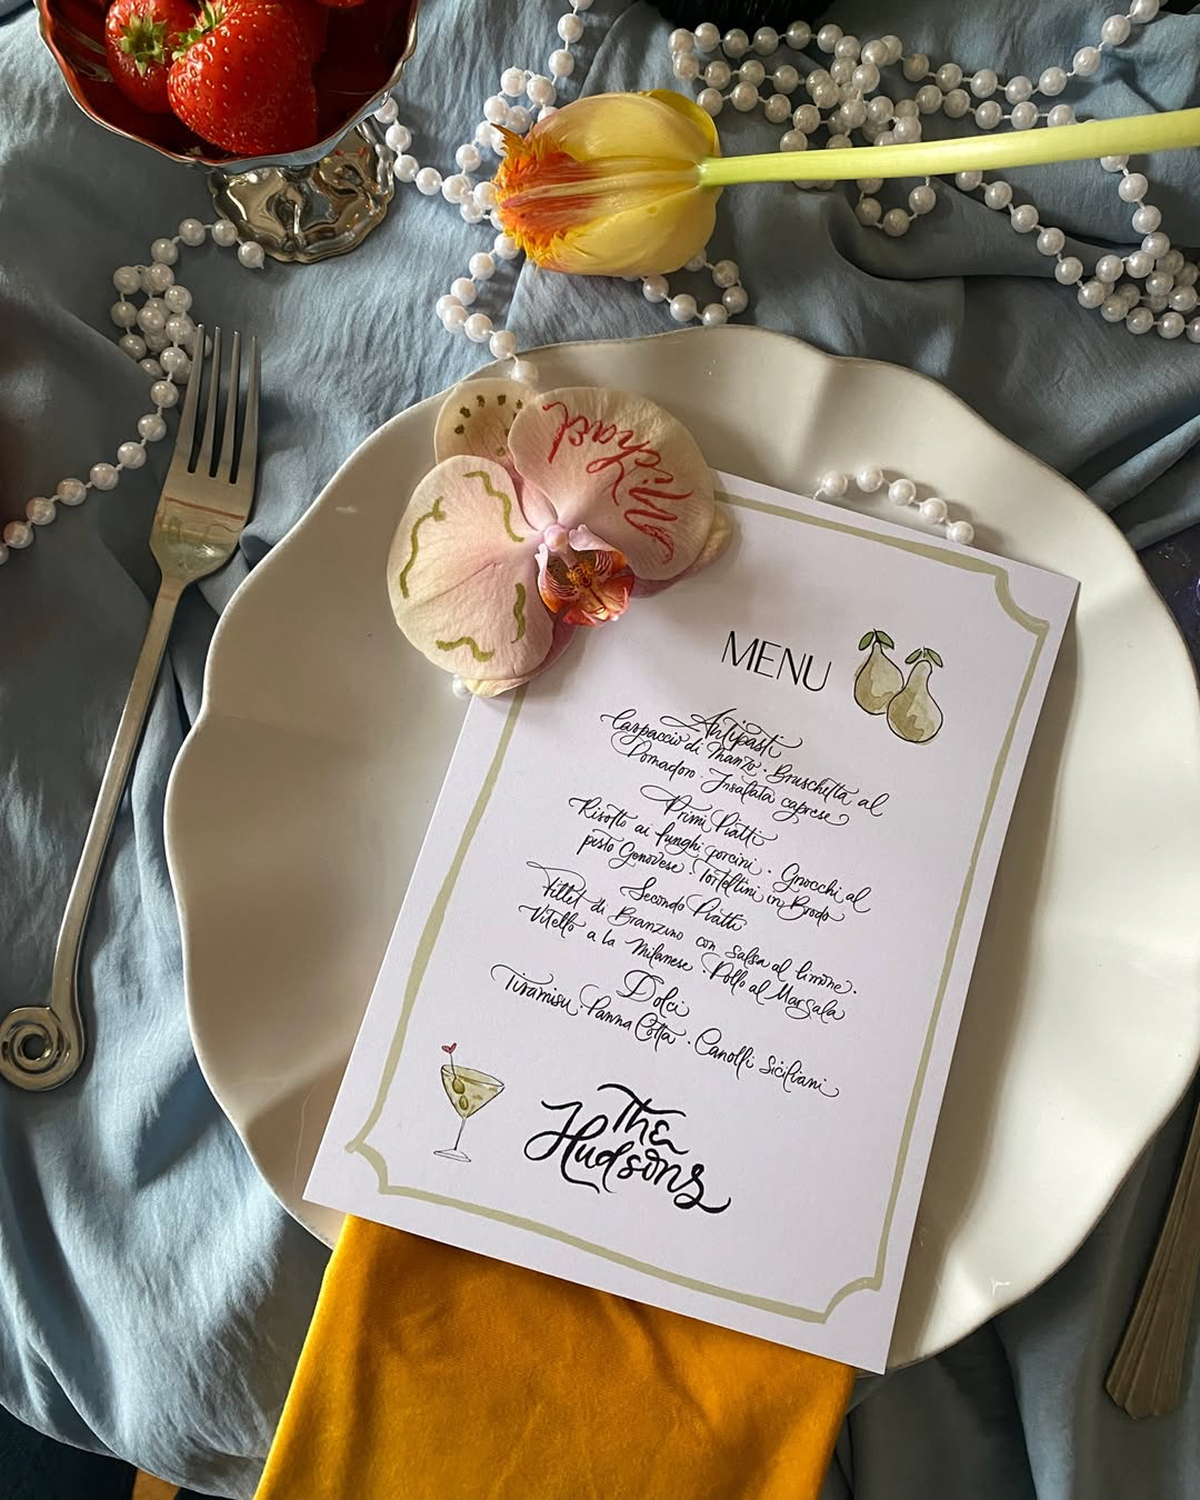 Michael
MENU
Antipasti
Carpaccio di Manzo · Bruschetta al
Pomadoro · Insalata caprese
Primi Piatti
Risotto ai funghi porcini · Gnocchi al
pesto Genovese · Tortellini in Brodo
Secondo Piatti
Fillet di Branzino con salsa al limone ·
Vitello a la Milanese · Pollo al Marsala
Dolci
Tiramisu · Panna Cotta · Canolli Siciliani
The
Hudsons